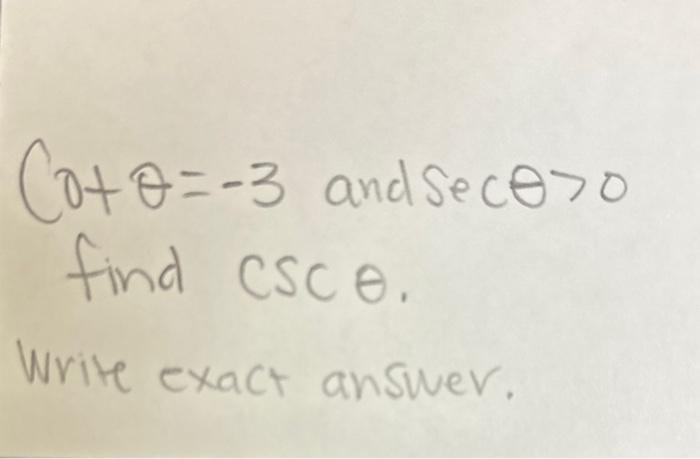 Cot θ = -3 and sec θ > 0
find csc θ.
Write exact answer.